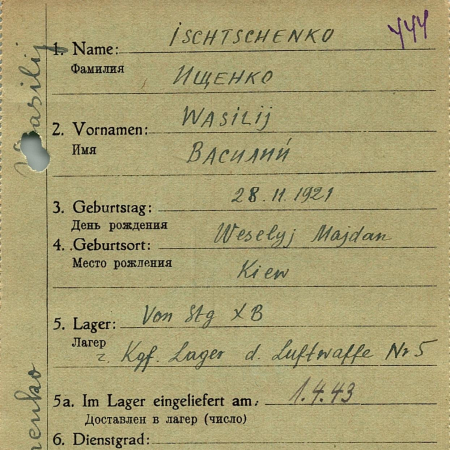 444
1. Name: ISCHTSCHENKO
Фамилия ИЩЕНКО
2. Vornamen: WASILIJ
Имя ВАСИЛИЙ
3. Geburtstag: 28.11.1921
День рождения
4. Geburtsort: Weselyj Majdan
Место рожления Kiew
5. Lager: Von Stg X B
Лагер z. Kgf. Lager d. Luftwaffe Nr 5
5a. Im Lager eingeliefert am: 1.4.43
Доставлен в лагер (число)
6. Dienstgrad:
Wasilij
enko